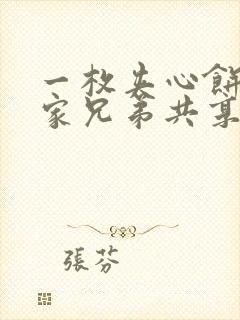 一枚夹心餅
家兄弟共某
張芬